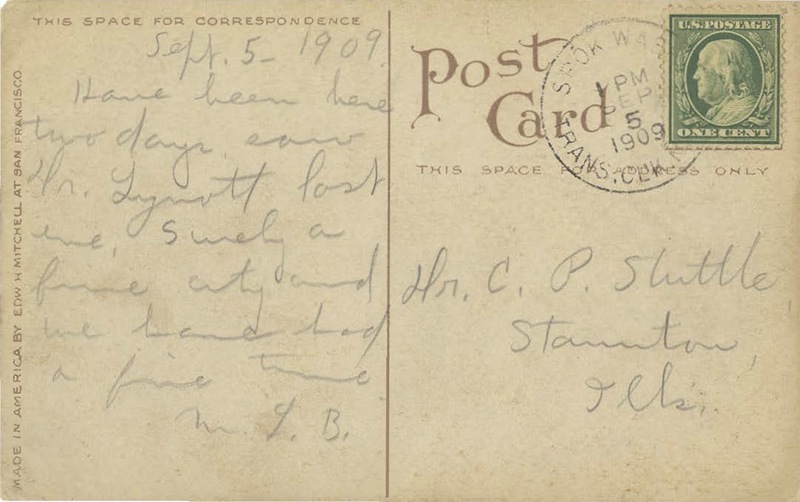 THIS SPACE FOR CORRESPONDENCE
Sept. 5 - 1909.
Have been here
two days, saw
Dr. Lynott last
eve. Surely a
fine city and
we have had
a fine time.
M. L. B.
MADE IN AMERICA BY EDW H MITCHELL AT SAN FRANCISCO
Post
Card
THIS SPACE FOR ADDRESS ONLY
SPOK WAS
1 PM
SEP
5
1909
TRANS. CLK
U.S. POSTAGE
ONE CENT
Dr. C. P. Shuttle
Staunton,
Ills.